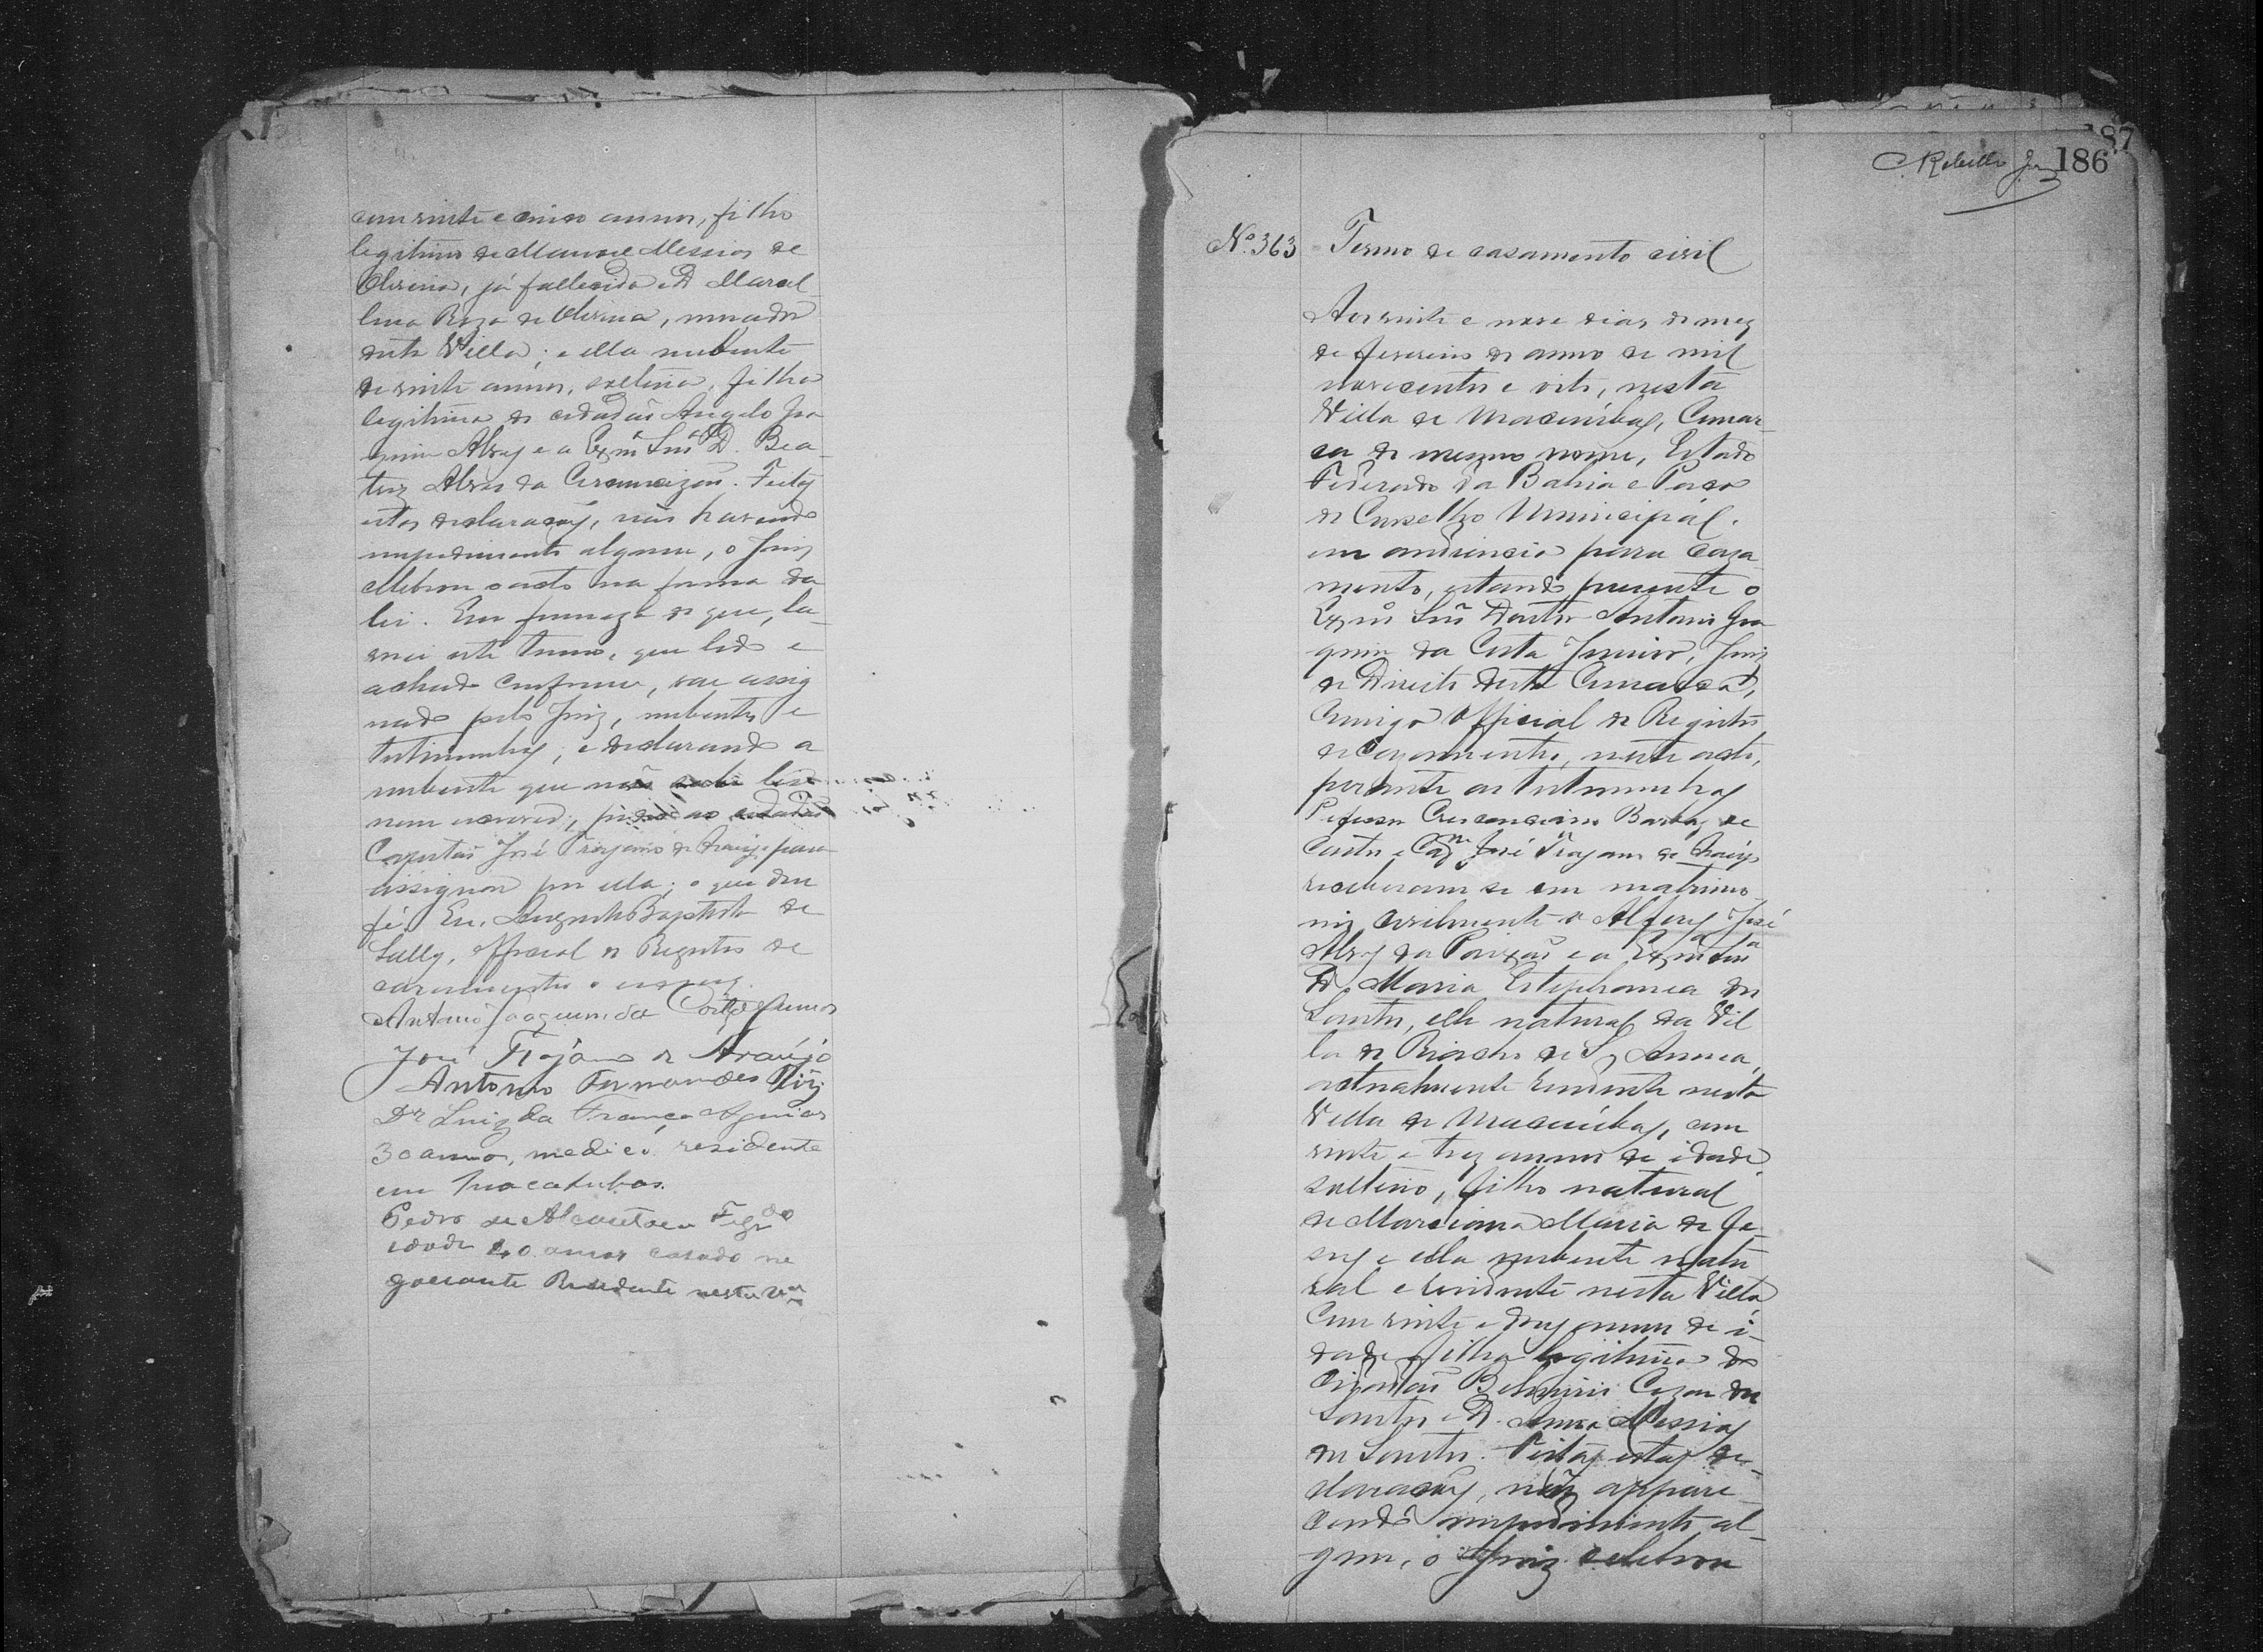 com vinte e cinco annos, filho
legitimo de Manoel Messias de
Oliveira, já fallecido e D. Marcel-
lina Roza de Oliveira, morador
desta Villa; e ella nubente
de vinte annos, solteira, filha
legitima do cidadão Angelo Joa-
quim Alves e a Exmª Snrª D. Bea-
triz Alves da Circumcizão. Feitas
estas declarações, não havendo
impedimento algum, o Juiz
celebrou o acto na forma da
lei. Em firmeza do que, la-
vrei este termo, que lido e
achado conforme, vae assig
nado pelo Juiz, nubentes e
testimunhas; e declarando a
nubente que não sabe ler
nem escrever, pedio ao cidadão
Capitão José Trajano de Araujo para
assignar por ella; o que dou
fé. Eu, Augusto Baptista de
Official do Registro de
casamentos o escrevy.
Antonio Joaquim da Costa Junior
José Trajano de Araújo
Antonio Fernandes
Dr Luiz da França Aguiar
30 annos, medico, residente
em Macahubas.
Pedro de Alcantara Figrdo
idade 40 annos casado ne
gociante Residente nesta Vª
186
187
Rebello Jor
Nº 363 Termo de casamento civil
Aos vinte e nove dias do mez
de fevereiro do anno de mil
novecentos e oito, nesta
Villa de Macaúbas, Comar-
ca do mesmo nome, Estado
Federado da Bahia e Paço
do Conselho Municipal.
em audiencia para caza
mento, estando presente o
Exmº Snr Doutor Antonio Joa
quim da Costa Junior, Juiz
de Direito desta Comarca,
Comigo Official do Registro
de Cazamentos, neste acto,
perante as testimunhas
Professor Crescenciano Barboz de
Castro e Capm José Trajano de Araujo
receberam se em matrimo-
nio civilmente o Alferes José
Alves da Paixão e a Exmª Snrª
D. Maria Estephanea dos
Santos, elle natural da Vil
la do Riacho de Sª Anna,
actualmente residente nesta
Villa de Macaúbas, com
vinte e trez annos de idade,
solteiro, filho natural
de Marciana Maria de Je-
sus e ella nubente natu
ral e residente nesta Villa
com vinte e dous annos de i-
dade filha legitima do
cidadão Belmiro Cezar dos
Santos e D. Anna Messias
dos Santos. Feitas estas de-
clarações, não appare-
cendo impedimento al-
gum, o Juiz celebrou